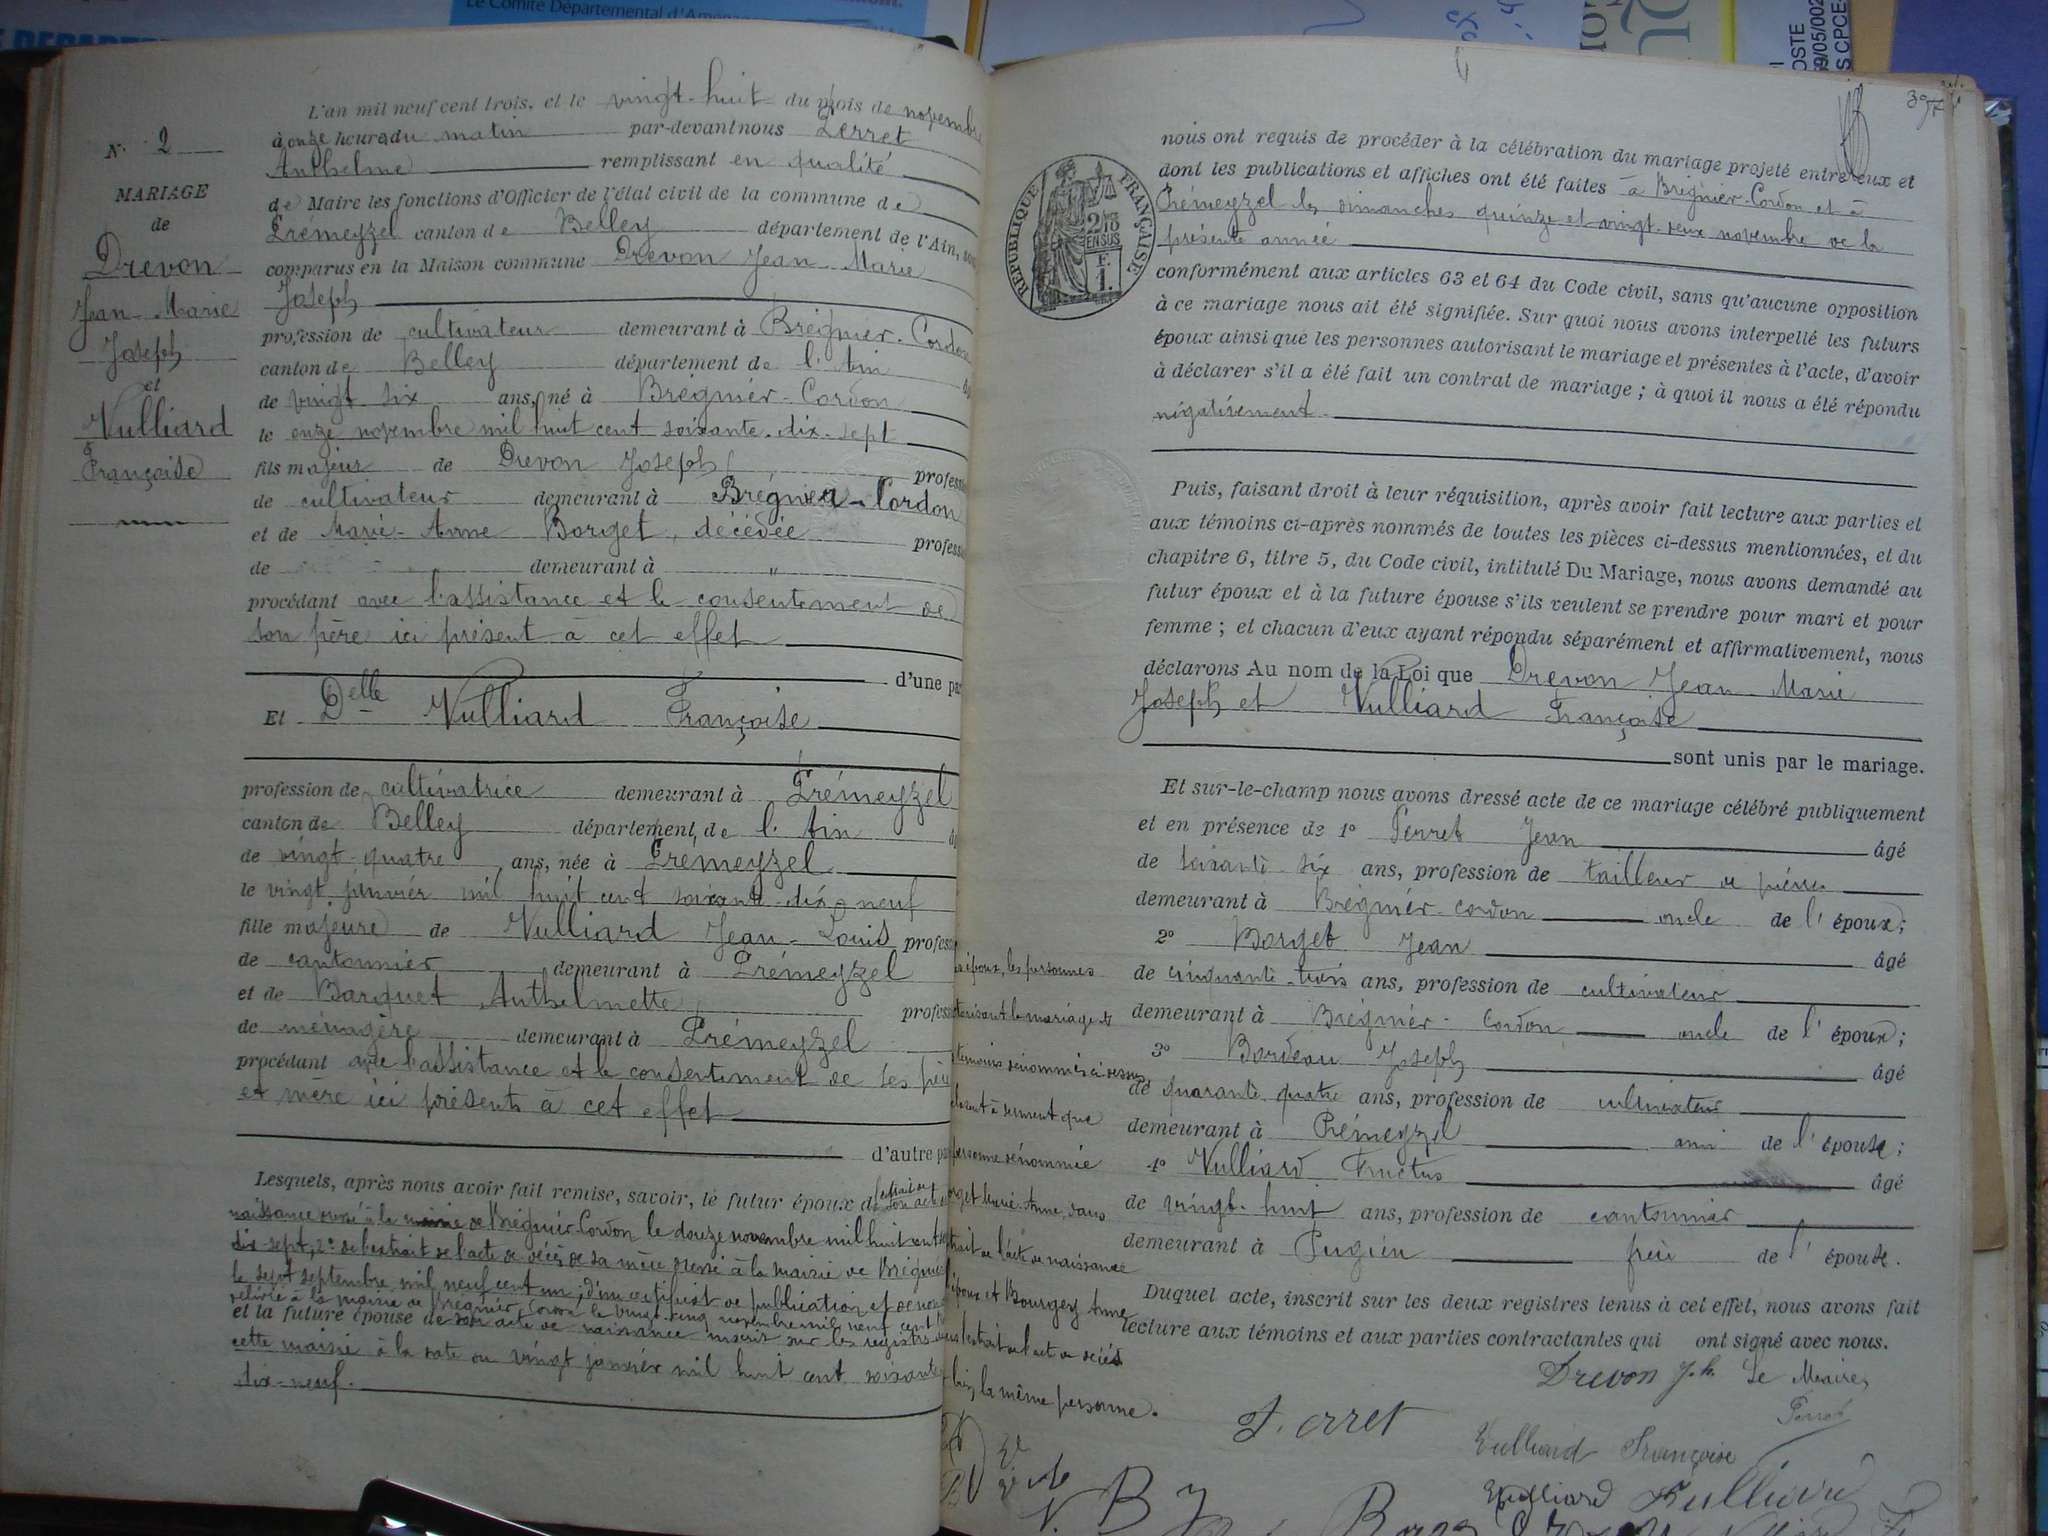 Le Comité Départemental d'Aménag
L'an mil neuf cent trois, et le vingt-huit du mois de novembre
à onze heures du matin par-devant nous Perret
Anthelme remplissant en qualité
de Maire les fonctions d'Officier de l'état civil de la commune de
Prémeyzel canton de Belley département de l'Ain,
comparus en la Maison commune Drevon Jean-Marie
Joseph
profession de cultivateur demeurant à Brégnier-Cordon
canton de Belley département de l'Ain
de vingt-six ans, né à Brégnier-Cordon
le onze novembre mil huit cent soixante-dix-sept
fils majeur de Drevon Joseph profess
de cultivateur demeurant à Brégnier-Cordon
et de Marie-Anne Borget, décédée profess
de demeurant à "
procédant avec l'assistance et le consentement de
son père ici présent à cet effet
d'une pa
Et Delle Vulliard Françoise
profession de cultivatrice demeurant à Prémeyzel
canton de Belley département de l'Ain
de vingt-quatre ans, née à Prémeyzel
le vingt janvier mil huit cent soixante-dix-neuf
fille majeure de Vulliard Jean-Louis profess
de cantonnier demeurant à Prémeyzel
et de Barquet Anthelmette profess
de ménagère demeurant à Prémeyzel
procédant avec l'assistance et le consentement de ses père
et mère ici présents à cet effet
d'autre pa
Lesquels, après nous avoir fait remise, savoir, le futur époux de l'extrait de son acte de
naissance dressé à la mairie de Brégnier-Cordon le douze novembre mil huit cent
dix-sept, 2° de l'extrait de l'acte de décès de sa mère dressé à la mairie de Brégnier
le sept septembre mil neuf cent un; d'un certificat de publication et de non
délivré à la mairie de Brégnier-Cordon le vingt-cinq novembre mil neuf cent
et la future épouse de son acte de naissance inscrit sur les registres de
cette mairie à la date du vingt janvier mil huit cent soixante
dix-neuf.
N° 2
MARIAGE
de
Drevon
Jean-Marie
Joseph
et
Vulliard
Françoise
RÉPUBLIQUE FRANÇAISE
2/10 EN SUS
F.
1.
nous ont requis de procéder à la célébration du mariage projeté entre eux et
dont les publications et affiches ont été faites à Brégnier-Cordon et à
Prémeyzel les dimanches quinze et vingt-deux novembre de la
présente année
conformément aux articles 63 et 64 du Code civil, sans qu'aucune opposition
à ce mariage nous ait été signifiée. Sur quoi nous avons interpellé les futurs
époux ainsi que les personnes autorisant le mariage et présentes à l'acte, d'avoir
à déclarer s'il a été fait un contrat de mariage; à quoi il nous a été répondu
négativement.
Puis, faisant droit à leur réquisition, après avoir fait lecture aux parties et
aux témoins ci-après nommés de toutes les pièces ci-dessus mentionnées, et du
chapitre 6, titre 5, du Code civil, intitulé Du Mariage, nous avons demandé au
futur époux et à la future épouse s'ils veulent se prendre pour mari et pour
femme; et chacun d'eux ayant répondu séparément et affirmativement, nous
déclarons Au nom de la Loi que Drevon Jean-Marie
Joseph et Vulliard Françoise
sont unis par le mariage.
Et sur-le-champ nous avons dressé acte de ce mariage célébré publiquement
et en présence de 1° Perret Jean âgé
de soixante-six ans, profession de tailleur de pierres
demeurant à Brégnier-Cordon oncle de l'époux;
2° Borget Jean âgé
de cinquante-trois ans, profession de cultivateur
demeurant à Brégnier-Cordon oncle de l'époux;
3° Bordeau Joseph âgé
de quarante-quatre ans, profession de cultivateur
demeurant à Prémeyzel ami de l'épouse;
4° Vulliard Fructus âgé
de vingt-huit ans, profession de cantonnier
demeurant à Pugieu frère de l'épouse.
Duquel acte, inscrit sur les deux registres tenus à cet effet, nous avons fait
lecture aux témoins et aux parties contractantes qui ont signé avec nous.
époux, les personnes
torisant le mariage et
témoins dénommés ci-dessus
clarent à serment que
personne dénommée
orget Marie-Anne, dans
trait de l'acte de naissance
l'époux et Bourgey Anne
l'extrait de l'acte de décès
bien la même personne.
Drevon J.h. Le Maire,
Perret
J. Perret
Vulliard Françoise
Vulliard Vulliard